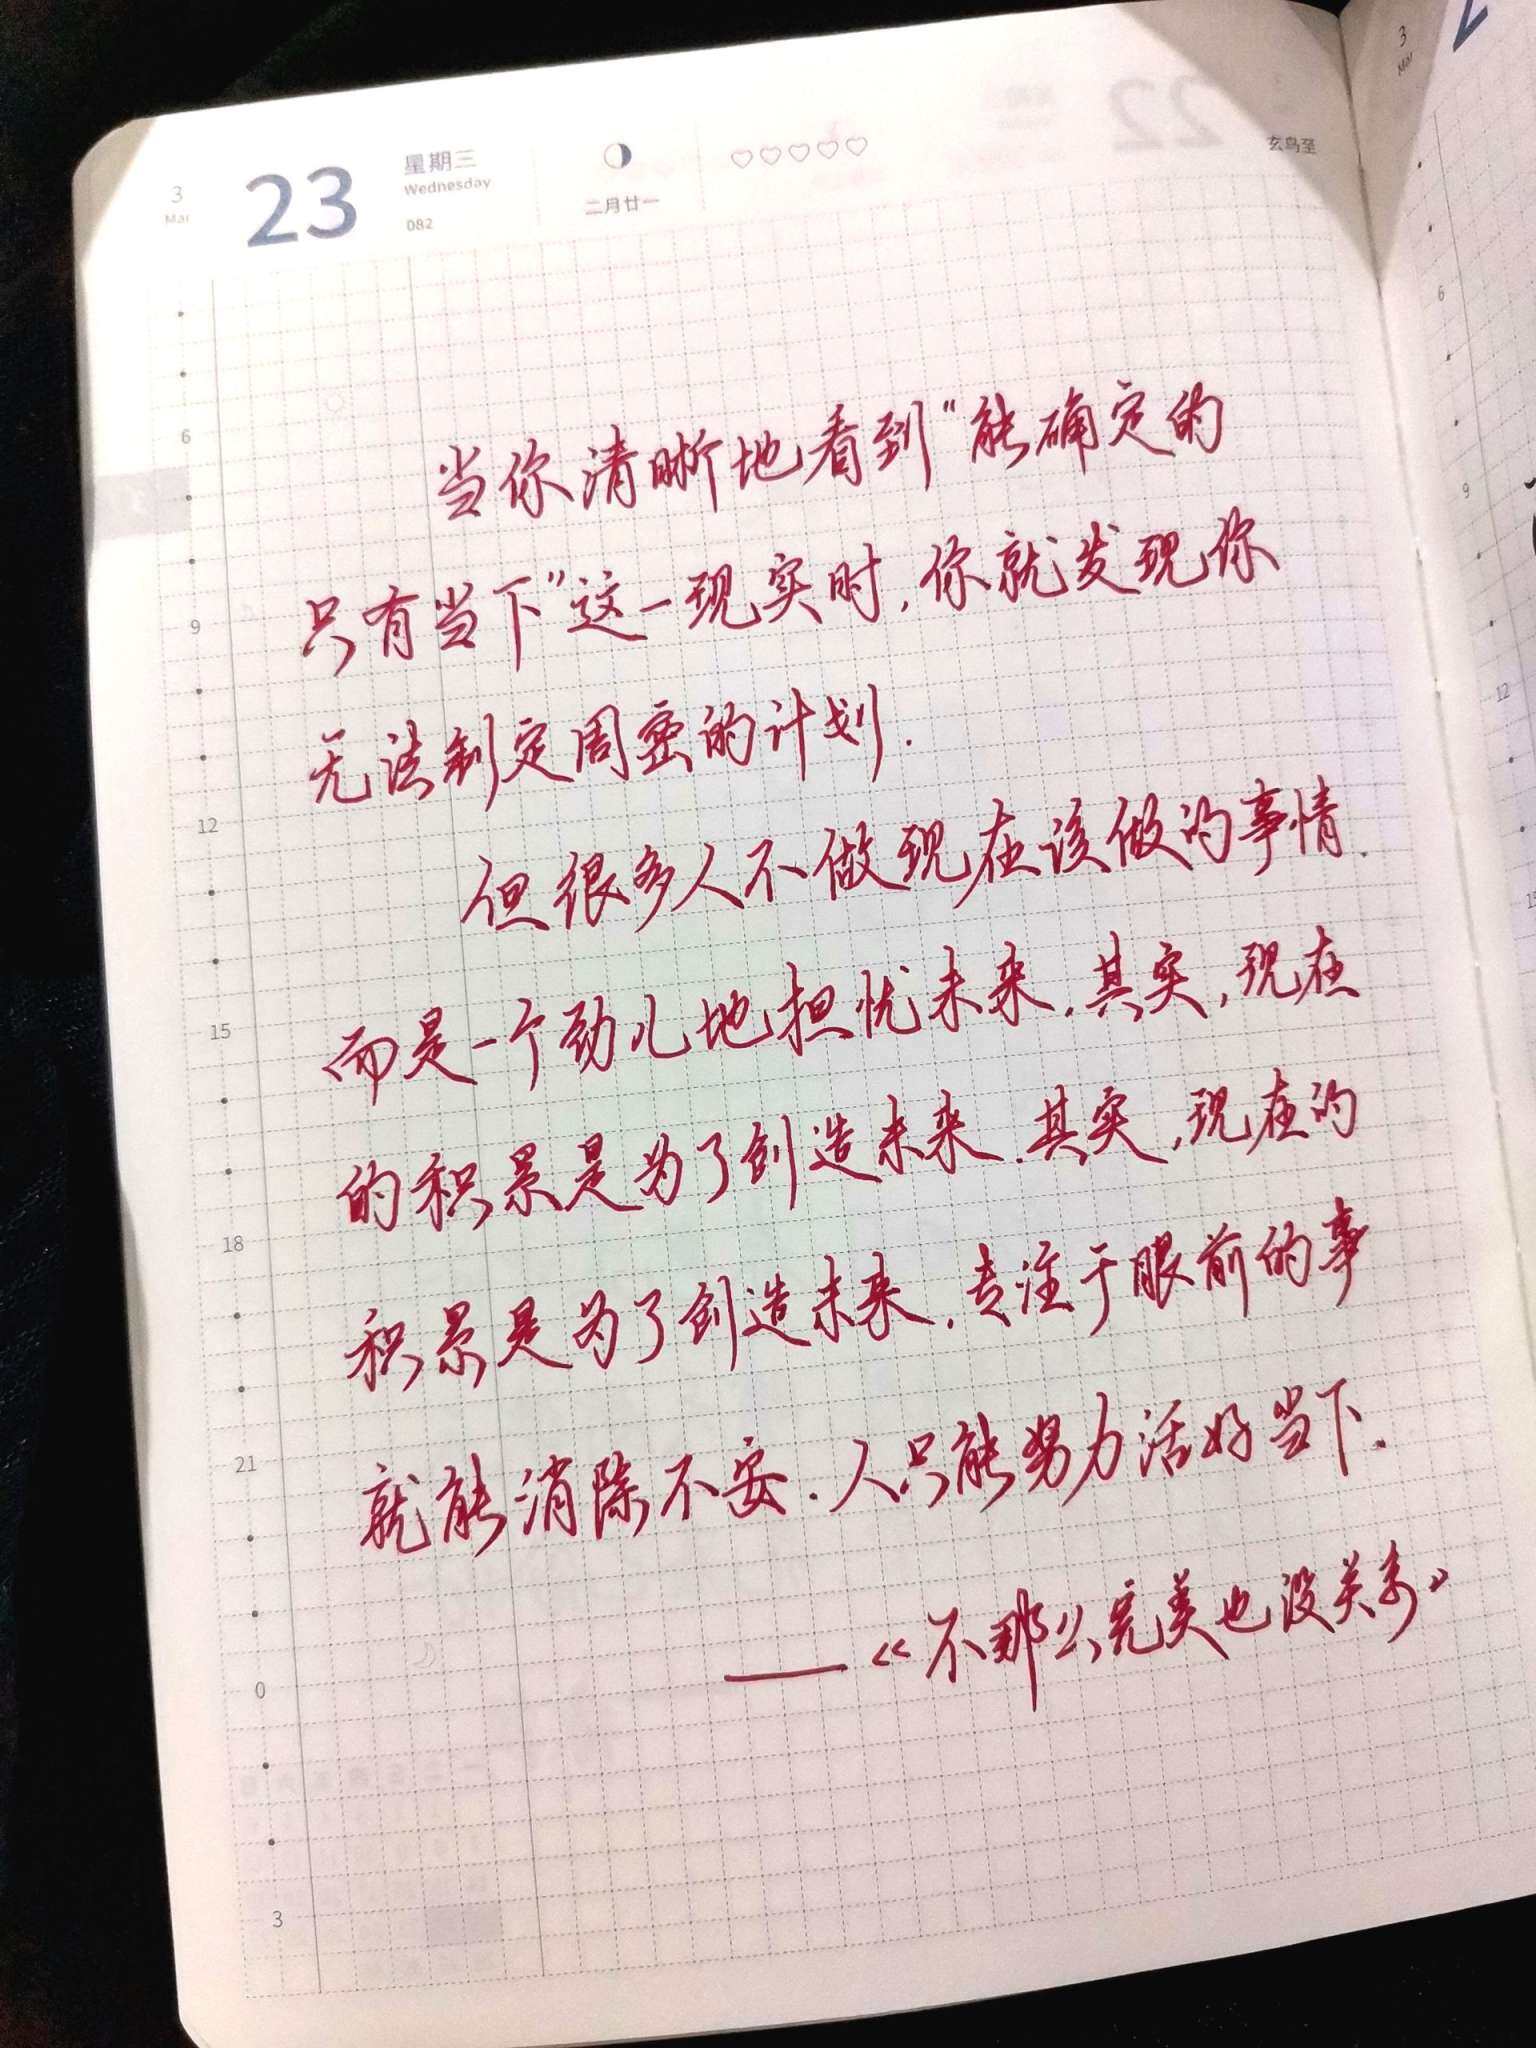 3
Mar
23
星期三
Wednesday
082
二月廿一
玄鸟至
3
Mar
22
当你清晰地看到“能确定的
只有当下”这一现实时,你就发现你
无法制定周密的计划.
但很多人不做现在该做的事情.
而是一个劲儿地担忧未来.其实,现在
的积累是为了创造未来.其实,现在的
积累是为了创造未来.专注于眼前的事
就能消除不安.人只能努力活好当下.
——《不那么完美也没关系》
6
9
12
15
18
21
0
3
6
9
12
15